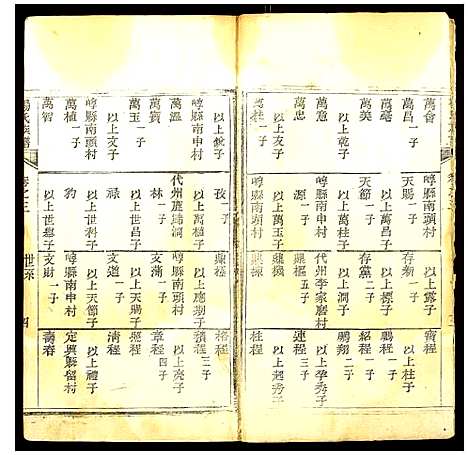 萬會
萬昌 一子
萬毫
萬美
萬意
萬忠
萬桂 一子
以上俊子
崞縣南申村
萬溫
萬寶
萬玉 一子
以上文子
崞縣南頭村
萬植 一子
萬智
崞縣南頭村
天賜 一子
天節 一子
以上萬柱子
崞縣南申村
以上萬玉子
崞縣南頭村
以上萬植子
代州
林 一子
以上世昌子
祿
以上世科子
豹
以上世德子
以上露子
存一子
以上標子
存黨 二子
以上洞子
代州李家磨村
鼎樞 五子
鼎樞
以上應期子
崞縣南頭村
文蒲 一子
以上天賜子
文道 一子
以上天節子
崞縣南申村
文財 一子
寶程
以上柱子
鵬程 一子
紹程 一子
鵬翔 二子
以上學秀子
連程 三子
以上起秀子
桂程
格程 三子
積程 二子
以上虎子
章程 四子
清程
以上禮子
定興縣留村
壽春
楊氏族譜
卷之三
世系
四